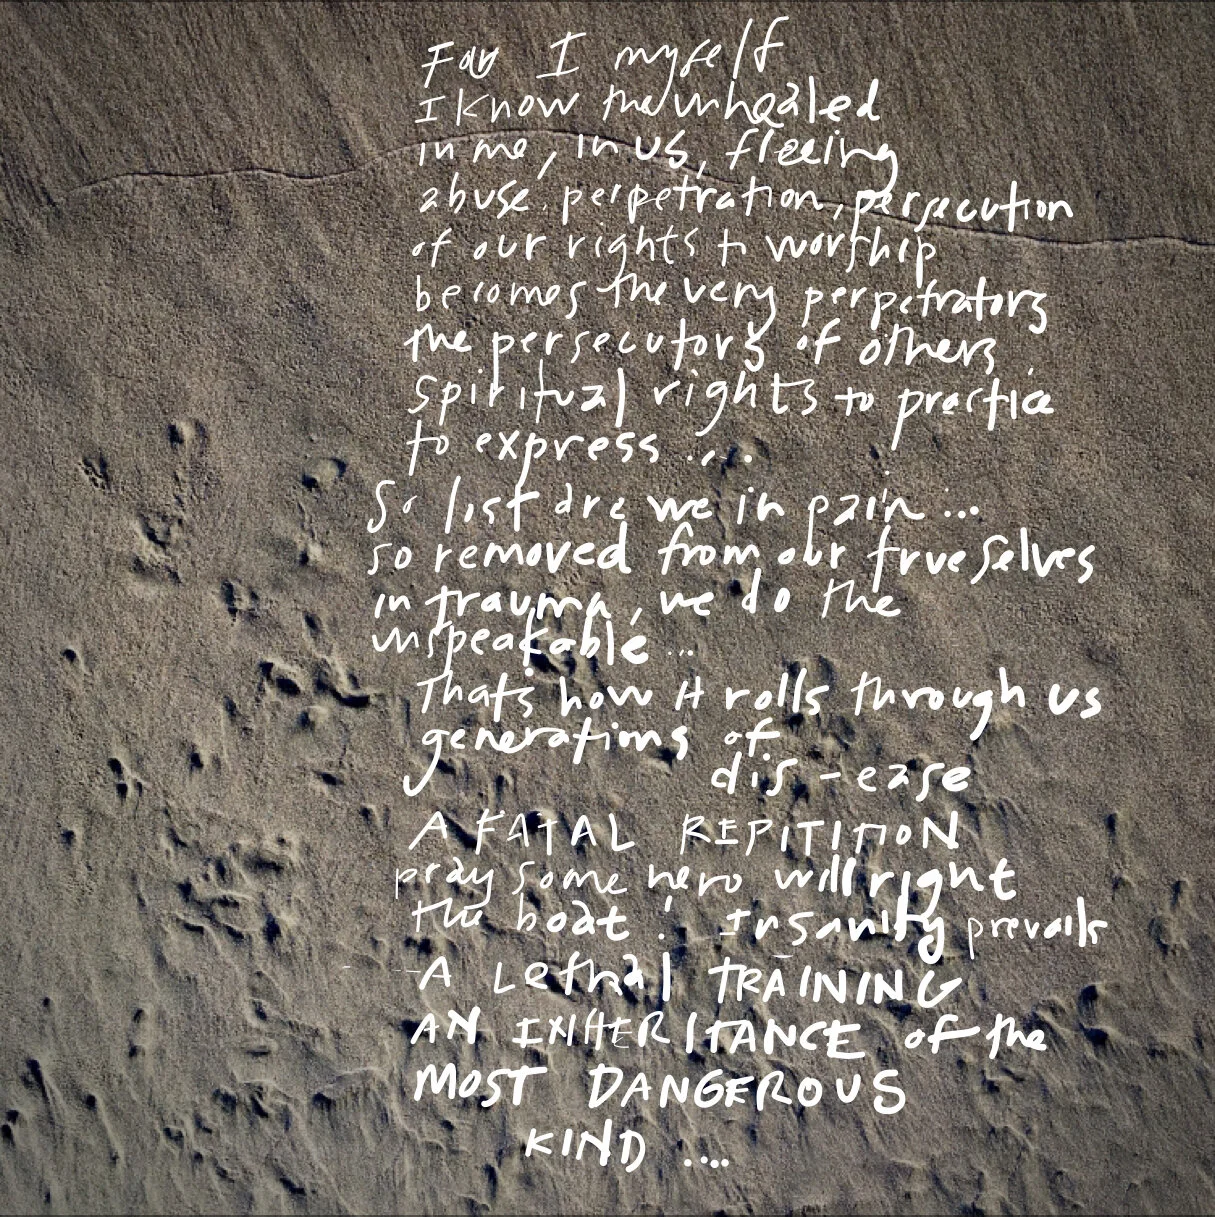 For I myself
I know the unhealed
in me, in us, fleeing
abuse. perpetration, persecution
of our rights to worship
becomes the very perpetrators
the persecutors of others
spiritual rights to practice
to express ....
So lost are we in pain ...
so removed from our true selves
in trauma, we do the
unspeakable ...
That's how it rolls through us
generations of
dis-ease
A FATAL REPITITION
pray some hero will right
the boat! Insanity prevails
A Lethal TRAINING
AN INHERITANCE of the
MOST DANGEROUS
KIND ....